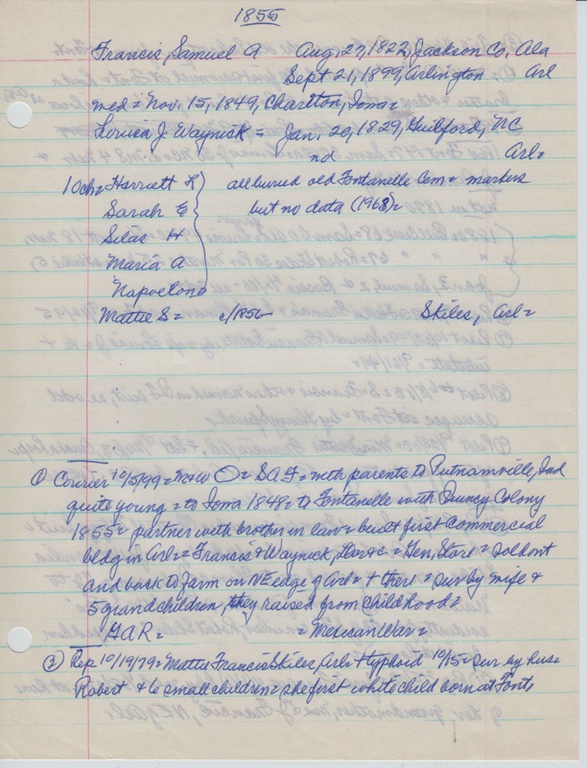 1855
Francis, Samuel A Aug, 27, 1822, Jackson Co, Ala
Sept 21, 1899, Arlington Arl
med = Nov. 15, 1849, Charlton, Iowa =
J. Waynick = Jan, 20, 1829, Guilford, NC
nd Arl=
10ch = Harriett R all buried old Fontanelle Cem = markers
Sarah E but no data (1968) =
Silas H
Maria A
Napoleon
Mattie S = c/1856 Skiles, Arl=
① Courier 10/5/99 = M&W O = SAF = with parents to Putnamville, Ind
quite young = to Iowa 1848 = to Fontanelle with Quincy Colony
1855 = partner with brother in law = built first Commercial
bldg in Arl = Francis & Waynick, = Gen, Store = Sold out
and back to farm on NE edge of Arl = + there = sur by wife &
5 grandchildren, they raised from childhood =
GAR = = Mexican War =
② Rep 10/19/79 = Mattie Francis Skiles, Arl + typhoid 10/15 = sur. by hus =
Robert & 6 small children = she first white child born at Font =